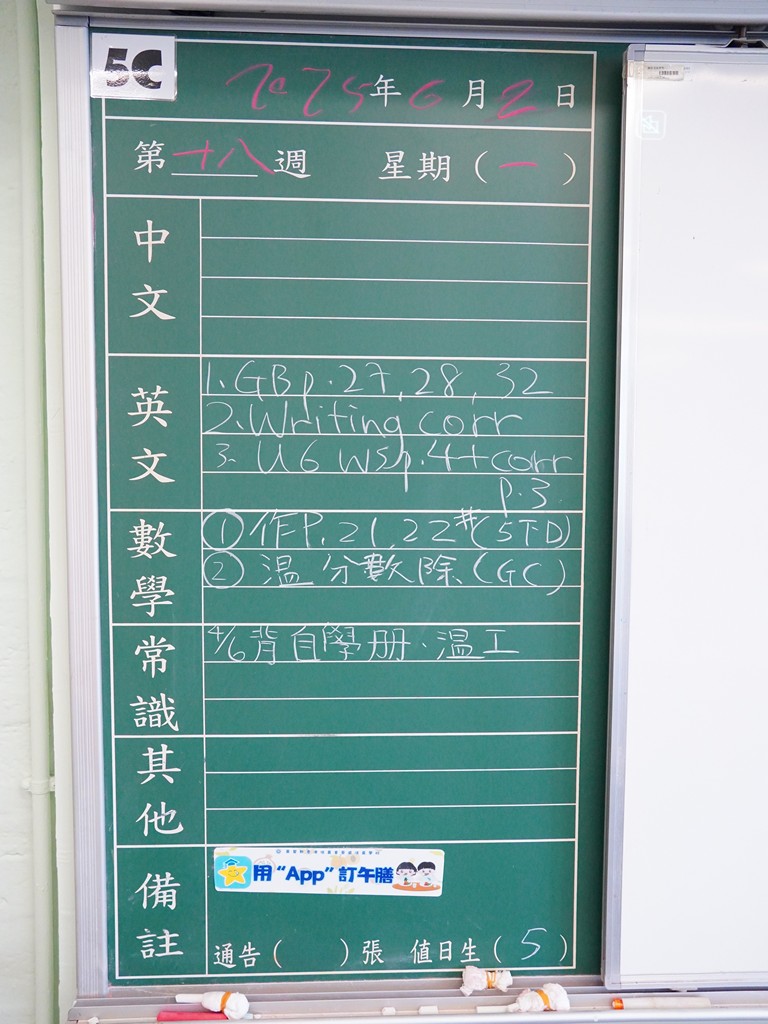 5C
2025年6月2日
第十八週 星期(一)
中文
英文
1. GB p.27, 28, 32
2. Writing corr
3. U6 WS p.4 + corr
p.3
數學
① 作P. 21, 22#(STD)
② 溫分數除(GC)
常識
4/6背自學冊、溫工
其他
備註
用“App”訂午膳
通告( )張 值日生(5)